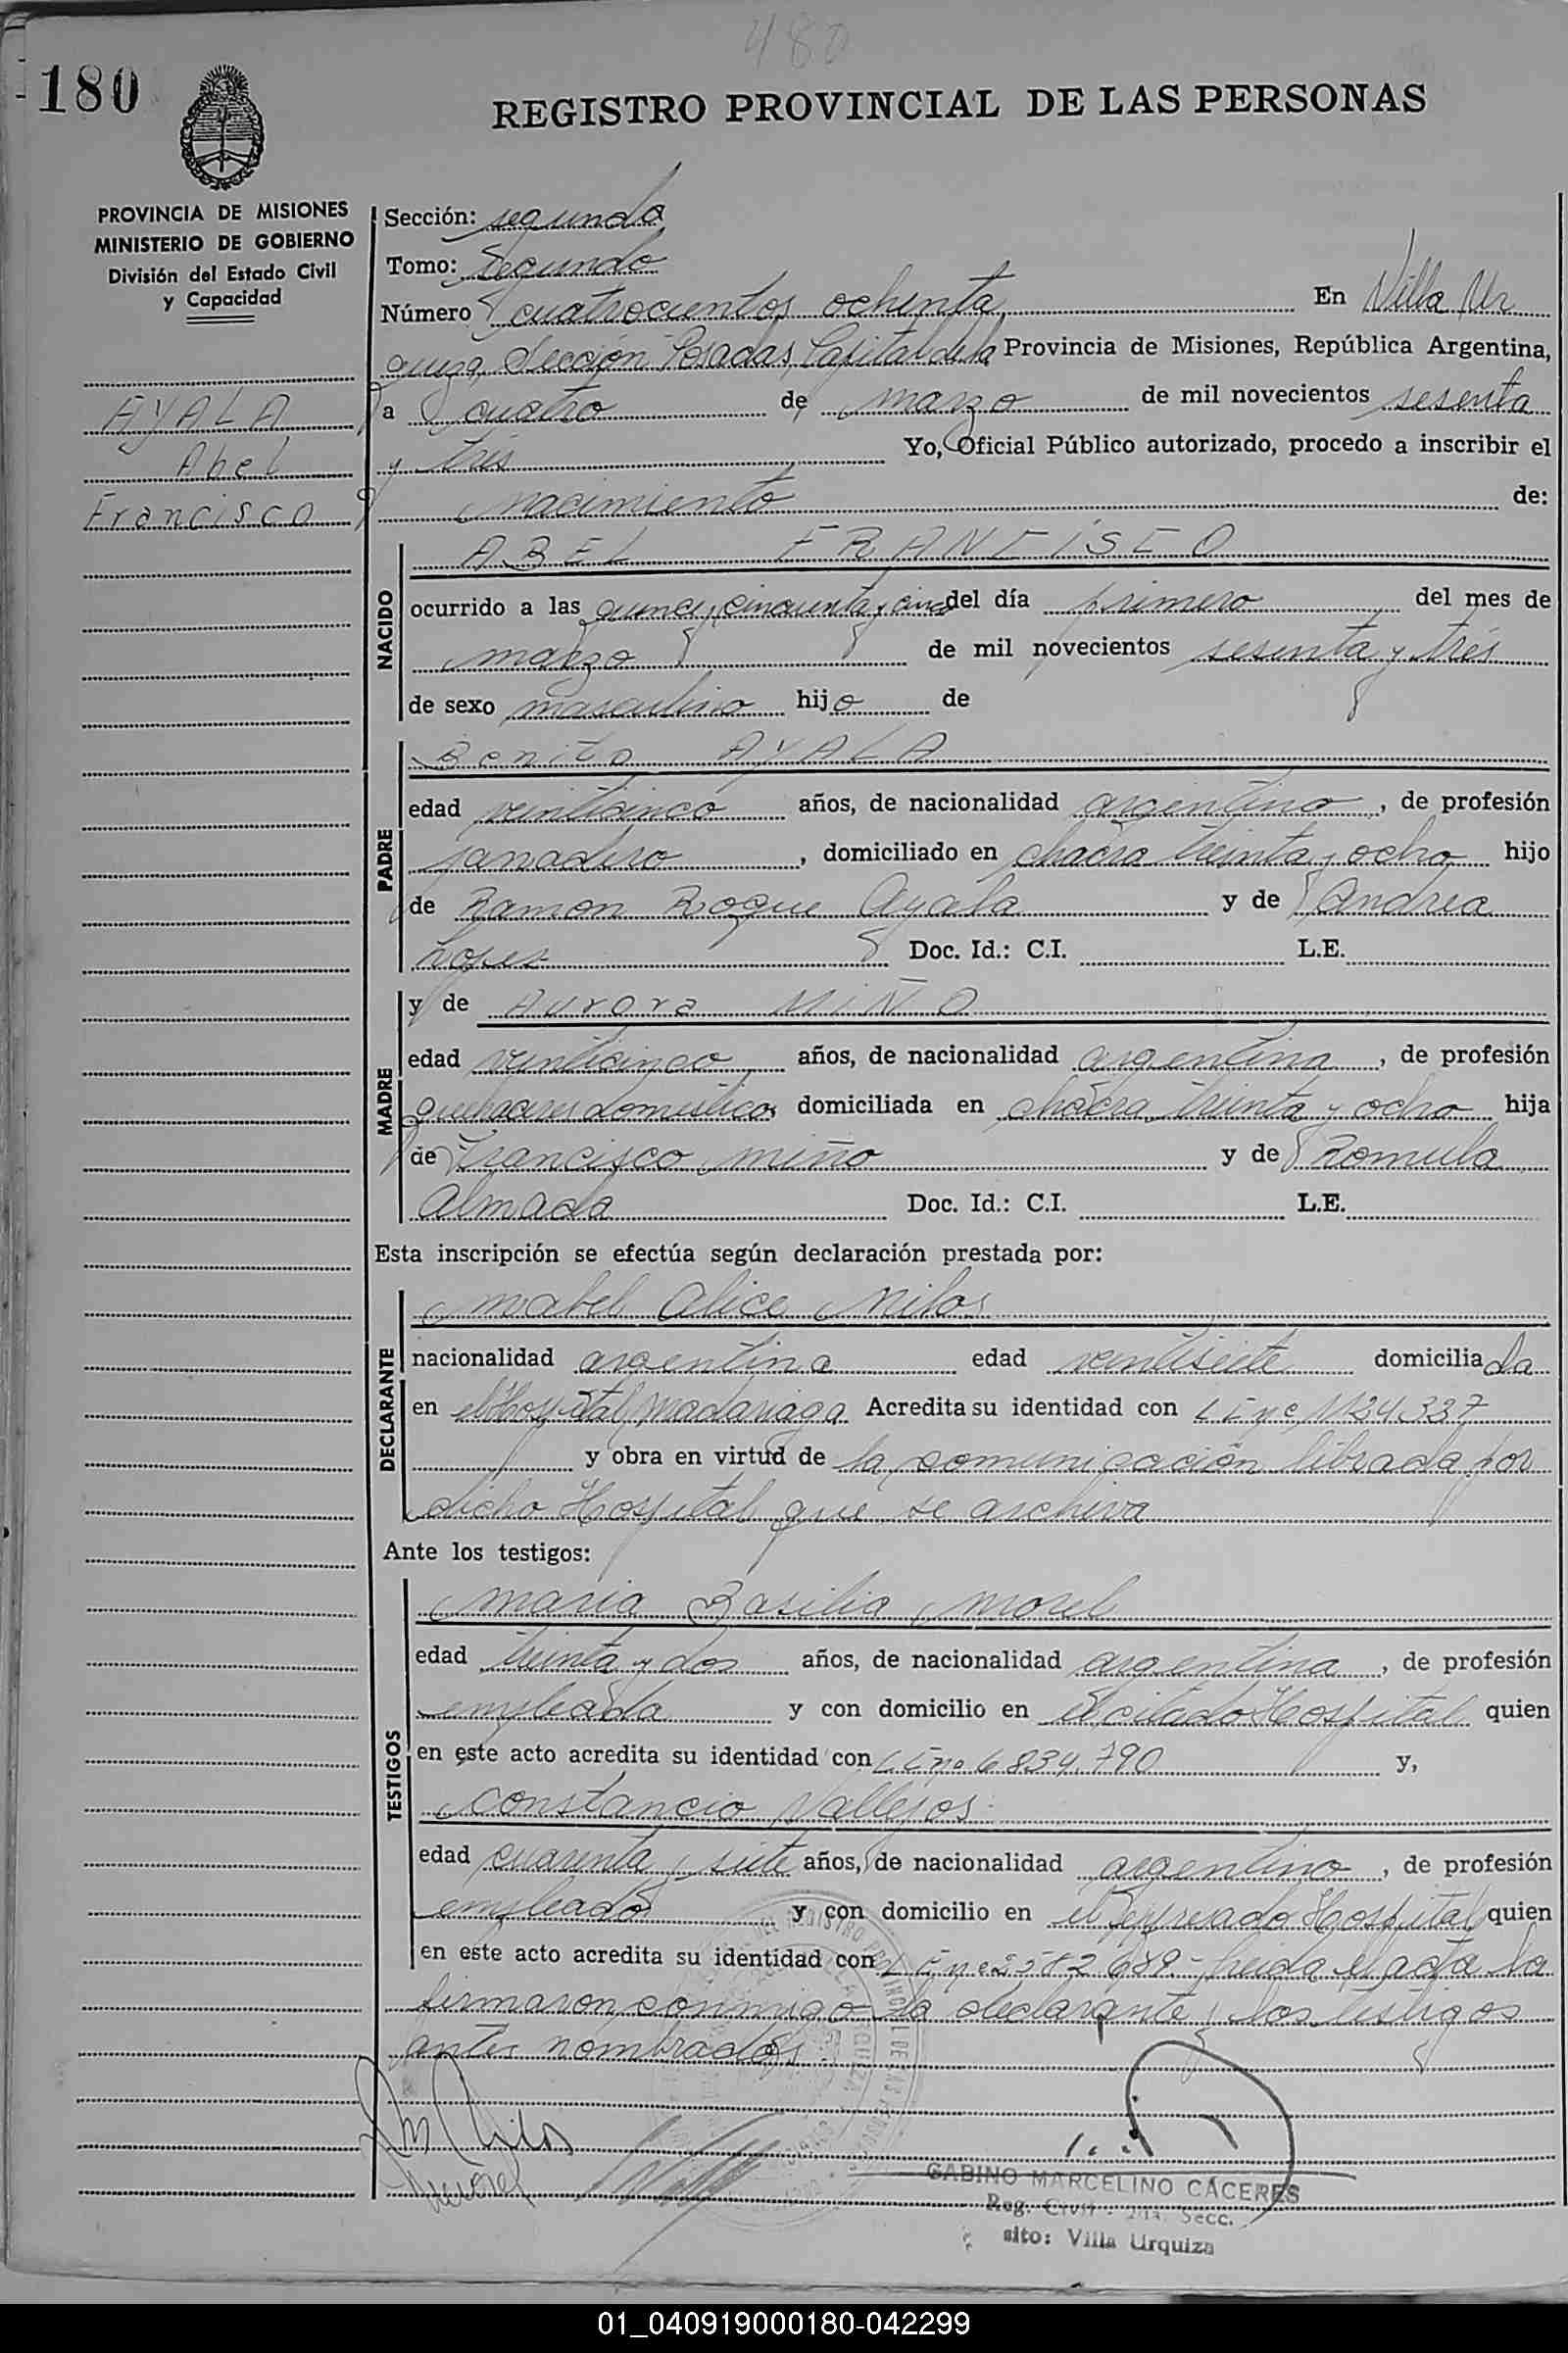 480
180
REGISTRO PROVINCIAL DE LAS PERSONAS
PROVINCIA DE MISIONES
MINISTERIO DE GOBIERNO
División del Estado Civil
y Capacidad
AYALA
Abel
Francisco
Sección: segunda
Tomo: Segundo
Número cuatrocientos ochenta En Villa Ur
quiza, Sección Posadas, Capital de la Provincia de Misiones, República Argentina,
a cuatro de marzo de mil novecientos sesenta
y tres Yo, Oficial Público autorizado, procedo a inscribir el
nacimiento de:
NACIDO
ABEL FRANCISCO
ocurrido a las quince y cincuenta y cinco del día primero del mes de
marzo de mil novecientos sesenta y trés
de sexo masculino hijo de
PADRE
Benito AYALA
edad veinticinco años, de nacionalidad argentino, de profesión
panadero, domiciliado en chacra treinta y ocho hijo
de Ramon Roque Ayala y de Andrea
Lopez Doc. Id.: C.I. L.E.
MADRE
y de Aurora MIÑO
edad veinticinco años, de nacionalidad argentina, de profesión
quehaceres domesticos domiciliada en chacra treinta y ocho hija
de Francisco Miño y de Romula
Almada Doc. Id.: C.I. L.E.
Esta inscripción se efectúa según declaración prestada por:
DECLARANTE
Mabel Alice Milos
nacionalidad argentina edad veintisiete domiciliada
en el Hospital Madariaga Acredita su identidad con
y obra en virtud de la comunicación librada por
dicho Hospital que se archiva
Ante los testigos:
TESTIGOS
Maria Basilia Morel
edad treinta y dos años, de nacionalidad argentina, de profesión
empleada y con domicilio en el citado Hospital quien
en este acto acredita su identidad con 6.834.790 y,
Constancio Vallejos
edad cuarenta y siete años, de nacionalidad argentino, de profesión
empleado y con domicilio en el expresado Hospital quien
en este acto acredita su identidad con Leida el acta la
firmaron conmigo la declarante y los testigos
antes nombrados.
M Milos
Morel
GABINO MARCELINO CÁCERES
Reg. Civil - 2da. Secc.
sito: Villa Urquiza
01_040919000180-042299